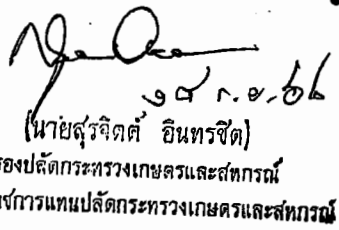 (นายสุรจิตต์ อินทรชิต)
รองปลัดกระทรวงเกษตรและสหกรณ์
ชการแทนปลัดกระทรวงเกษตรและสหกรณ์